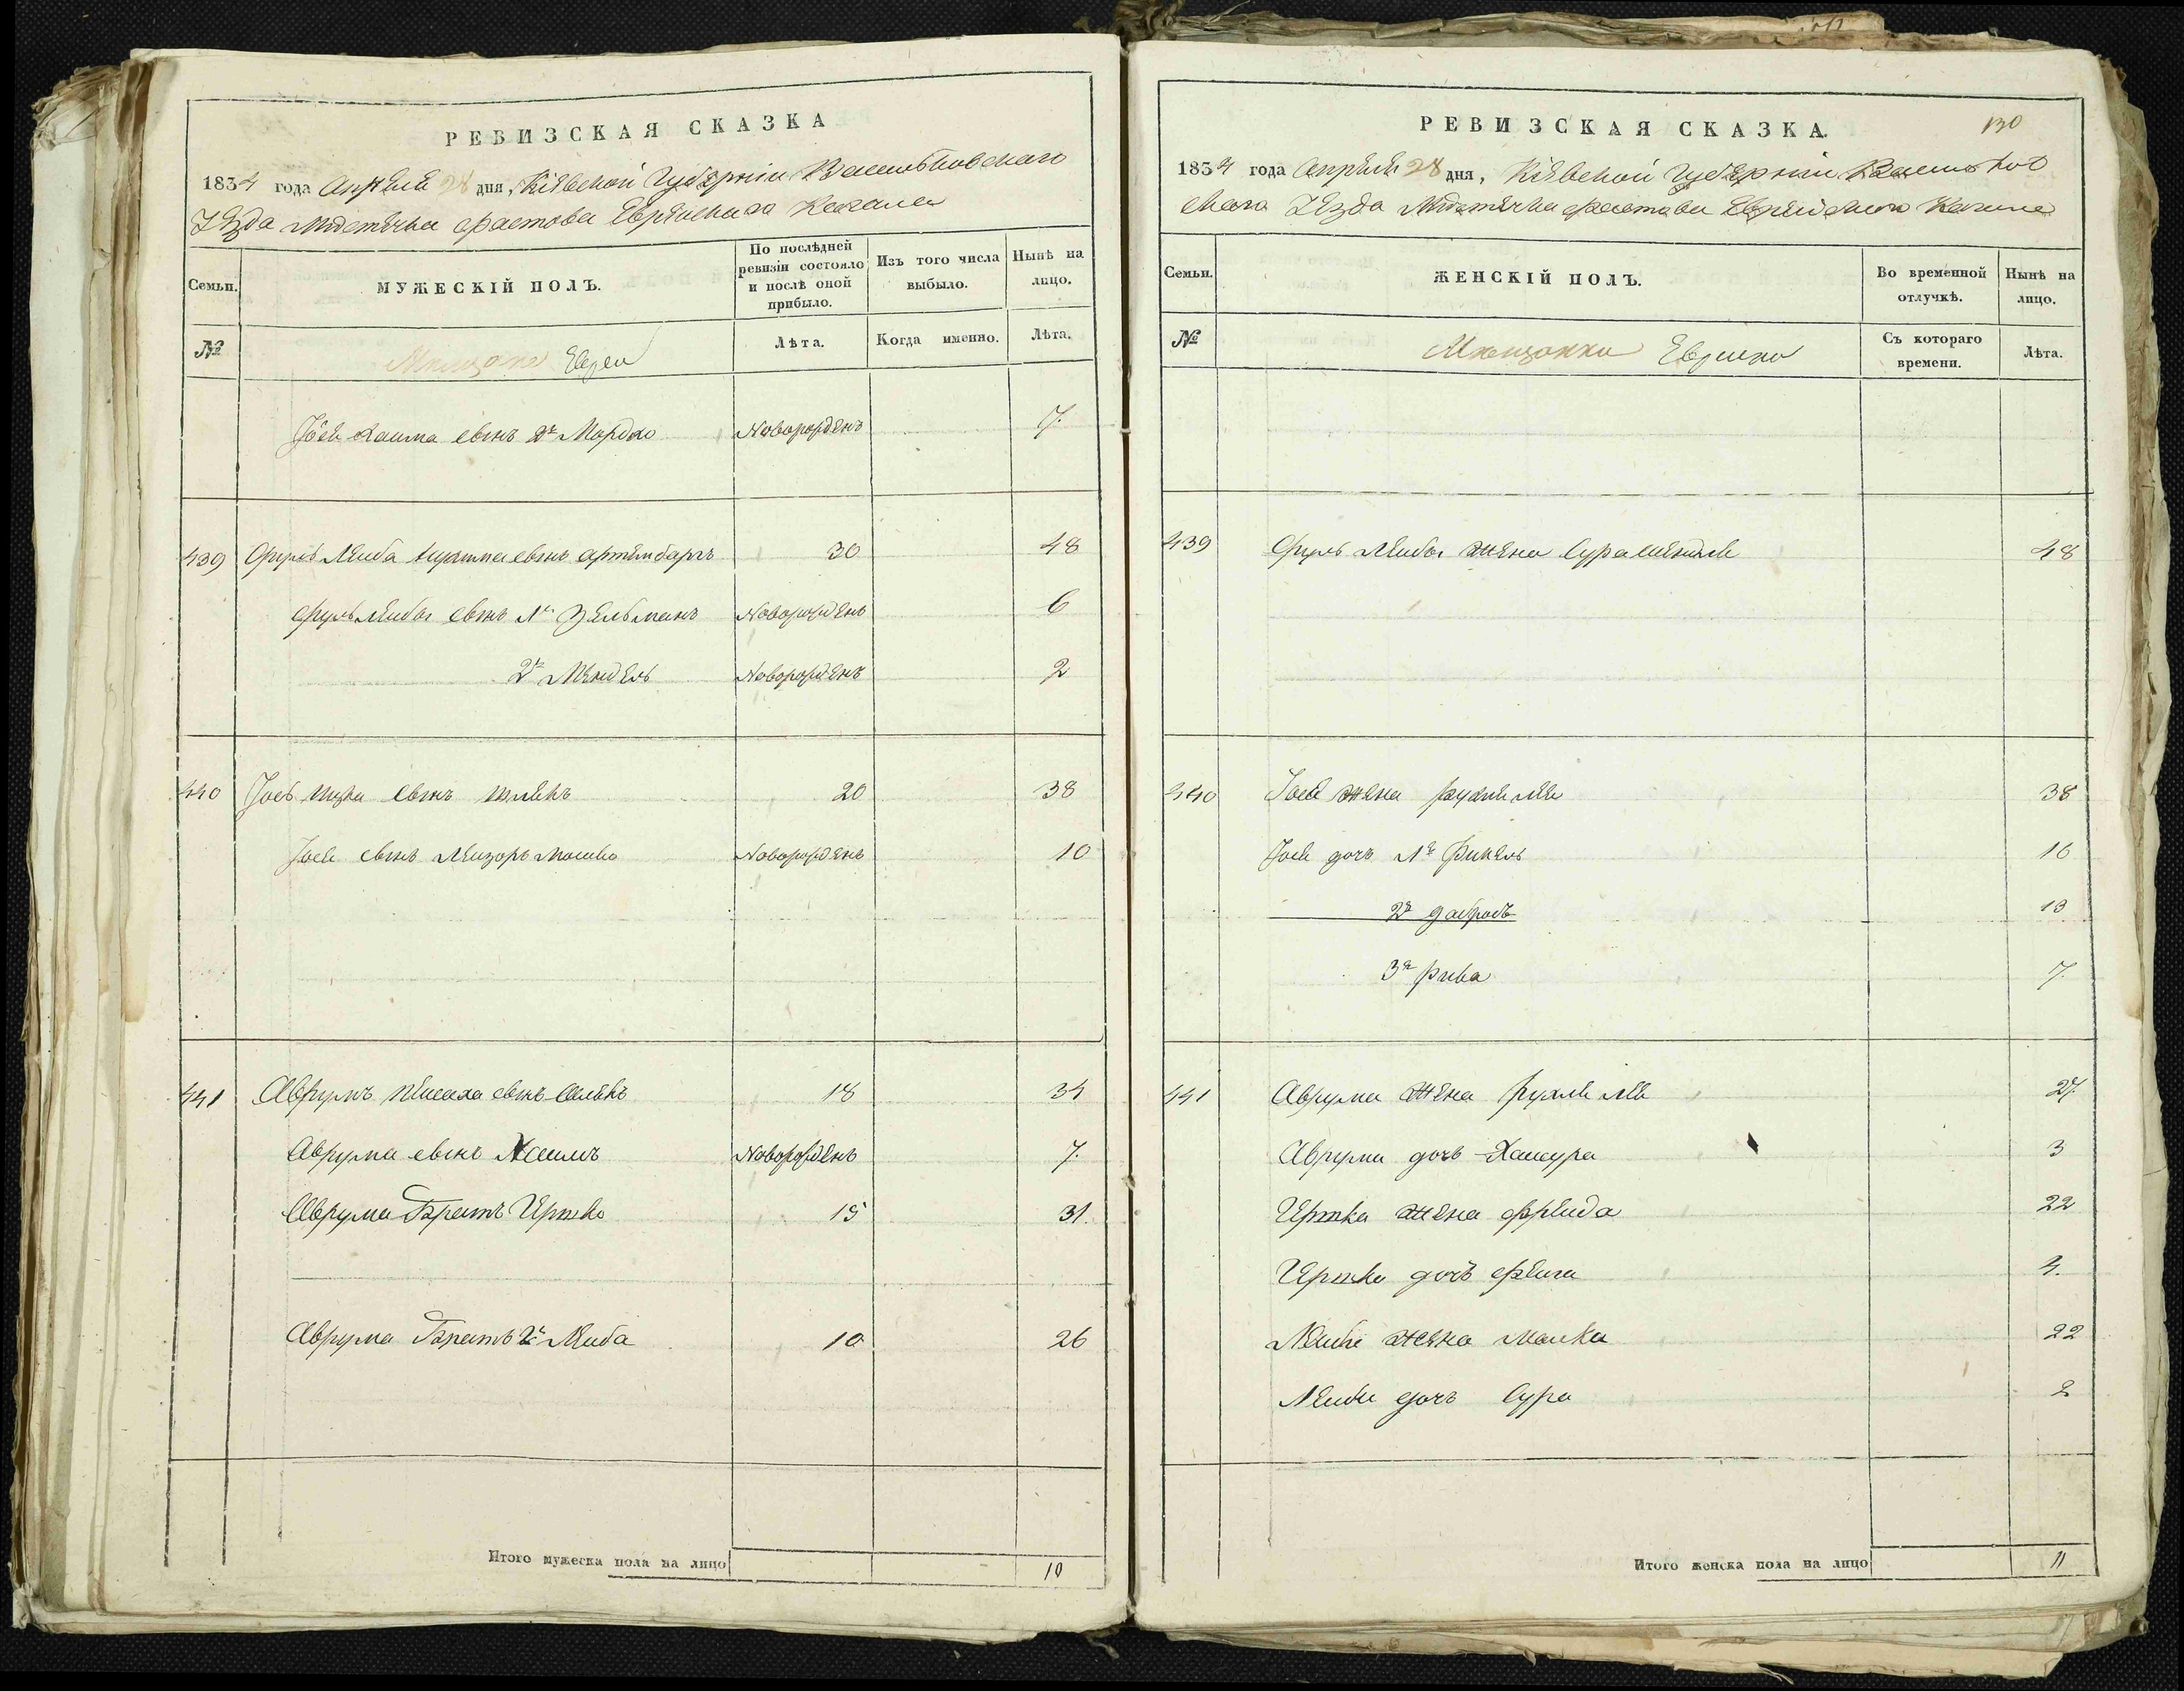 РЕВИЗСКАЯ СКАЗКА
1834 года Апреля 28 дня, Кіевской Губерніи Васильковскаго
Уезда Местечка Фастова Еврейскаго Кагала
Семьи.
МУЖЕСКІЙ ПОЛЪ.
По послѣдней ревизіи состояло и послѣ оной прибыло.
Изъ того числа выбыло.
Нынѣ на лицо.
№
Мещане Евреи
Лѣта.
Когда именно.
Лѣта.
Хаима сынъ 2й Мордко Новорожденъ 7.
439 Лейба сынъ 30 48
Лейбы сынъ 1й Зельманъ Новорожденъ 6
2й Мендель Новорожденъ 2
440 Іось Ицка сынъ 20 38
Іося сынъ Лейзоръ Мошко Новорожденъ 10
441 Аврумъ сынъ 18 34
Аврума сынъ Хаимъ Новорожденъ 7.
Аврума Братъ Гершко 15 31.
Аврума Братъ 2й Лейба 10 26
Итого мужеска пола на лицо 10
РЕВИЗСКАЯ СКАЗКА.
130
1834 года Апреля 28 дня, Кіевской Губерніи Васильков
скаго Уезда Местечка Фастова Еврейскаго Кагала
Семьи.
ЖЕНСКІЙ ПОЛЪ.
Во временной отлучкѣ.
Нынѣ на лицо.
№
Мещанки Еврейки
Съ котораго времени.
Лѣта.
439 Лейбы жена Сура 48
440 Іося жена Рухля 38
Іося дочь 1я 16
2я 13
3я Рива 7.
441 Аврума жена Рухля 27
Аврума дочь Хаисура 3
Гершка жена Фрейда 22
Гершка дочь Фейга 4.
Лейбы жена Малка 22
Лейбы дочь Сура 2
Итого женска пола на лицо 11